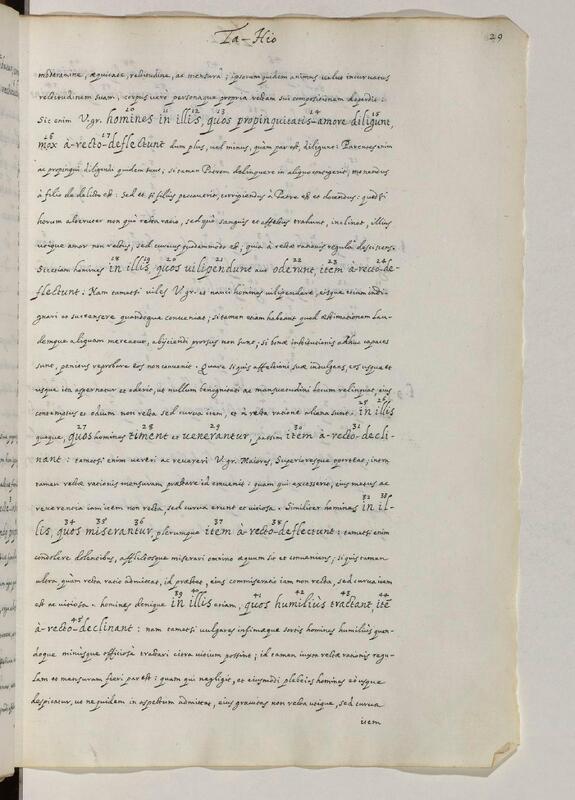 Ta-Hio
29
moderamine, æquitate, rectitudine, ac mensurâ; ipsorum quidem animus velut incurvatus
rectitudinem suam, corpus vero personaque propria rectam sui compositionem deperdit:
10 11 12 13 14 15
Sic enim V.gr. homines in illis, quos propinquitatis-amore diligunt,
16 17
mox à-recto-deflectunt dum plus, vel minus, quàm par est, diligunt: Parentes enim
ac propinqui diligendi quidem sunt; si tamen Patrem delinquere in aliquo contigerit, monendus
à filio de delicto est: Sed et si filius peccaverit, corripiendus à Patre est et docendus: quod si
horum alteruter non quà recta ratio, sed quà sanguis et affectus trahunt, inclinat, illius
utique amor non rectus, sed curvus quodammodo est; quia à rectæ rationis regulâ desciscens.
18 19 20 21 22 23 24
Sic etiam homines in illis, quos vilipendunt aut oderunt, item à-recto-de-
flectunt: Nam tametsi viles V.gr. et nauci homines vilipendere, eisque etiam indi-
gnari et succensere quandoque conveniat; si tamen etiam habeant quod æstimationem lau-
demque aliquam mereatur, abjiciendi prorsus non sunt; si bonæ institutionis adhuc capaces
sunt, penitus reprobare eos non convenit. Quare si quis affectioni suæ indulgens, eos usque et
usque ita aspernatur et oderit, ut nullum benignitati ac mansuetudini locum relinquat, ejus
25 26
contemptus et odium non recta sed curva item, et à recta ratione aliena sunt. in illis
27 28 29 30 31
quoque, quos homines timent et venerantur, passim item à-recto-decli-
nant: tametsi enim vereri ac revereri V.gr. Maiores, Superioresque oporteat; intra
tamen rectæ rationis mensuram præstare id convenit: quam qui excesserit, ejus metus ac
32 33
reverentia iam item non recta, sed curva erunt et vitiosa. Similiter homines in il-
34 35 36 37 38
lis, quos miserantur, plerumque item à-recto-deflectunt: tametsi enim
condolere dolentibus, afflictosque miserari omnino æquum sit et conveniens; si quis tamen
ultra, quam recta ratio admittat, id præstet, ejus commiseratio iam non recta, sed curva item
39 40 41 42 43 44
est ac vitiosa. homines denique in illis etiam, quos humiliùs tractant, itẽ
45
à-recto-declinant: nam tametsi vulgares infimæque sortis homines humiliùs quan-
doque minùsque officiosè tractari citra vitium possint; id tamen iuxta rectæ rationis regu-
lam et mensuram fieri par est: quam qui negligit, et eiusmodi plebeios homines eò usque
despicatur, ut ne quidem in aspectum admittat, ejus gravitas non recta utique, sed curva
item